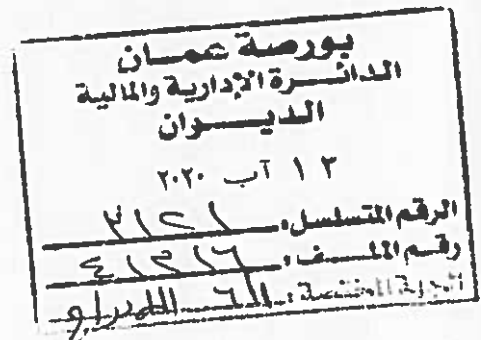 بورصة عمان
الدائرة الإدارية والمالية
الديوان
١٣ آب ٢٠٢٠
الرقم المتسلسل: ٣١٢١
رقم الملف: ٤١٢١٦
الجهة المختصة: